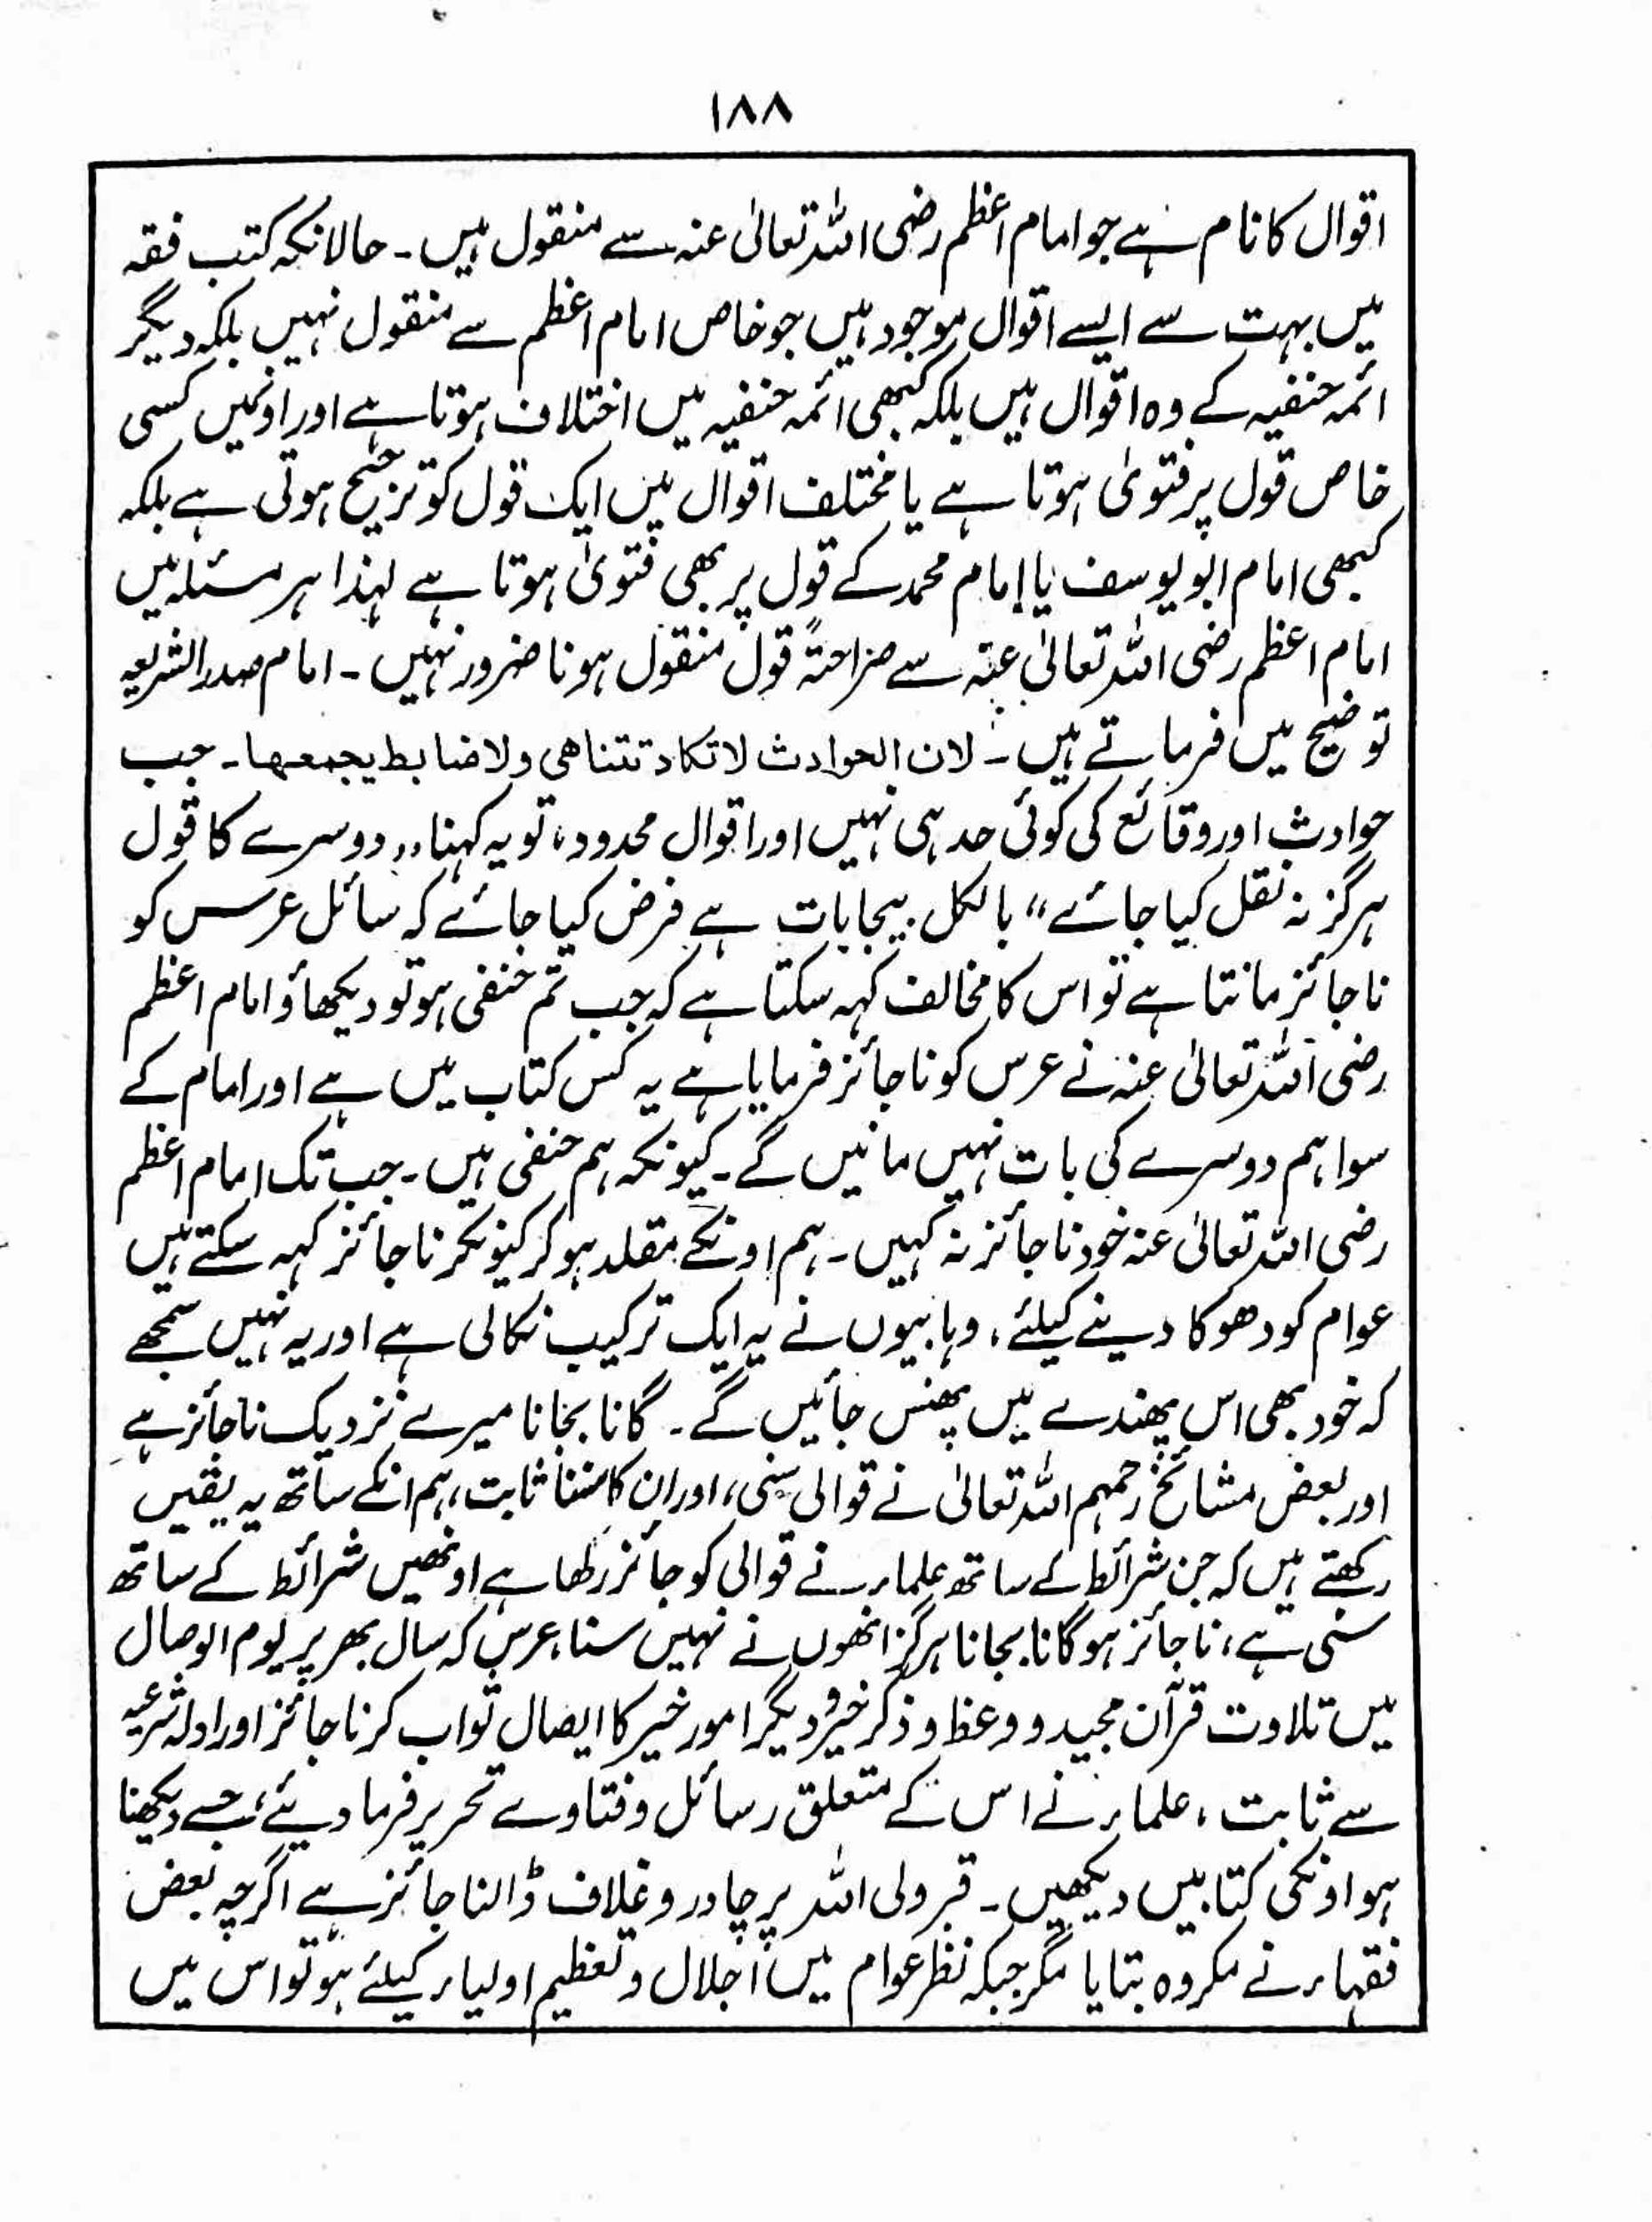 ۱۸۸
اقوال کا نام ہے جو امام اعظم رضی اللہ تعالیٰ عنہ سے منقول ہیں۔ حالانکہ کتب فقہ
میں بہت سے ایسے اقوال موجود ہیں جو خاص امام اعظم سے منقول نہیں بلکہ دیگر
ائمہ حنفیہ کے وہ اقوال ہیں بلکہ کبھی ائمہ حنفیہ میں اختلاف ہوتا ہے اور اونمیں کسی
خاص قول پر فتویٰ ہوتا ہے یا مختلف اقوال میں ایک قول کو ترجیح ہوتی ہے بلکہ
کبھی امام ابو یوسف یا امام محمد کے قول پر بھی فتویٰ ہوتا ہے لہذا ہر مسئلہ میں
امام اعظم رضی اللہ تعالیٰ عنہ سے صراحتہً قول منقول ہونا ضرور نہیں۔ امام صدر الشریعہ
توضیح میں فرماتے ہیں۔ لان الحوادث لا تکاد تتناهی ولا ضابط یجمعها۔ جب
حوادث اور وقائع کی کوئی حد ہی نہیں اور اقوال محدود، تو یہ کہنا ،، دوسرے کا قول
ہرگز نہ نقل کیا جائے “ بالکل بیجا بات ہے فرض کیا جائے کہ سائل عرس کو
ناجائز مانتا ہے تو اس کا مخالف کہہ سکتا ہے کہ جب تم حنفی ہو تو دیکھاؤ امام اعظم
رضی اللہ تعالیٰ عنہ نے عرس کو ناجائز فرمایا ہے یہ کس کتاب میں ہے اور امام کے
سوا ہم دوسرے کی بات نہیں مانیں گے۔ کیونکہ ہم حنفی ہیں۔ جب تک امام اعظم
رضی اللہ تعالیٰ عنہ خود ناجائز نہ کہیں۔ ہم اونکے مقلد ہو کر کیونکر ناجائز کہہ سکتے ہیں
عوام کو دھوکا دینے کیلئے، وہابیوں نے یہ ایک ترکیب نکالی ہے اور یہ نہیں سمجھے
کہ خود بھی اس پھندے میں پھنس جائیں گے۔ گانا بجانا میرے نزدیک ناجائز ہے
اور بعض مشائخ رحمہم اللہ تعالیٰ نے قوالی سنی، اور ان کا سننا ثابت، ہم انکے ساتھ یہ یقیں
رکھتے ہیں کہ جن شرائط کے ساتھ علماء نے قوالی کو جائز رکھا ہے اونھیں شرائط کے ساتھ
سنی ہے، ناجائز ہو گانا بجانا ہرگز انھوں نے نہیں سنا، عرس کہ سال بھر پر یوم الوصال
میں تلاوت قرآن مجید و وعظ و ذکر خیر و دیگر امور خیر کا ایصال ثواب کرنا جائز اور ادلہ شرعیہ
سے ثابت، علماء نے اس کے متعلق رسائل و فتاوے تحریر فرما دیئے، جسے دیکھنا
ہو اونکی کتابیں دیکھیں۔ قبر ولی اللہ پر چادر و غلاف ڈالنا جائز ہے اگرچہ بعض
فقہاء نے مکروہ بتایا مگر جبکہ نظر عوام میں اجلال و تعظیم اولیاء کیلئے ہو تو اس میں